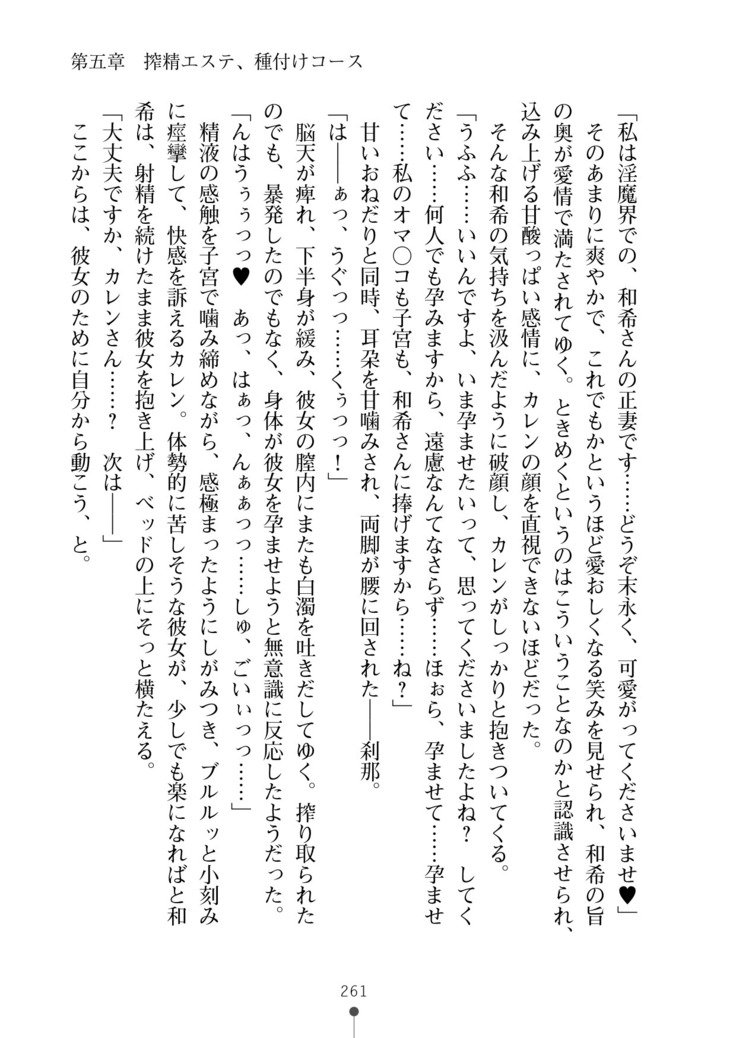 第五章　搾精エステ、種付けコース
「私は淫魔界での、和希さんの正妻です……どうぞ末永く、可愛がってくださいませ♥」
そのあまりに爽やかで、これでもかというほど愛おしくなる笑みを見せられ、和希の旨
の奥が愛情で満たされてゆく。ときめくというのはこういうことなのかと認識させられ、
込み上げる甘酸っぱい感情に、カレンの顔を直視できないほどだった。
そんな和希の気持ちを汲んだように破顔し、カレンがしっかりと抱きついてくる。
「うふふ……いいんですよ、いま孕ませたいって、思ってくださいましたよね？　してく
ださい……何人でも孕みますから、遠慮なんてなさらず……ほぉら、孕ませて……孕ませ
て……私のオマ〇コも子宮も、和希さんに捧げますから……ね？」
甘いおねだりと同時、耳朶を甘噛みされ、両脚が腰に回された――刹那。
「は――ぁっ、うぐっっ……くぅっっ！」
脳天が痺れ、下半身が緩み、彼女の膣内にまたも白濁を吐きだしてゆく。搾り取られた
のでも、暴発したのでもなく、身体が彼女を孕ませようと無意識に反応したようだった。
「んはうぅぅっっ♥　あっ、はぁっ、んぁぁっっ……しゅ、ごいぃっっ……」
精液の感触を子宮で噛み締めながら、感極まったようにしがみつき、ブルルッと小刻み
に痙攣して、快感を訴えるカレン。体勢的に苦しそうな彼女が、少しでも楽になればと和
希は、射精を続けたまま彼女を抱き上げ、ベッドの上にそっと横たえる。
「大丈夫ですか、カレンさん……？　次は――」
ここからは、彼女のために自分から動こう、と。
261